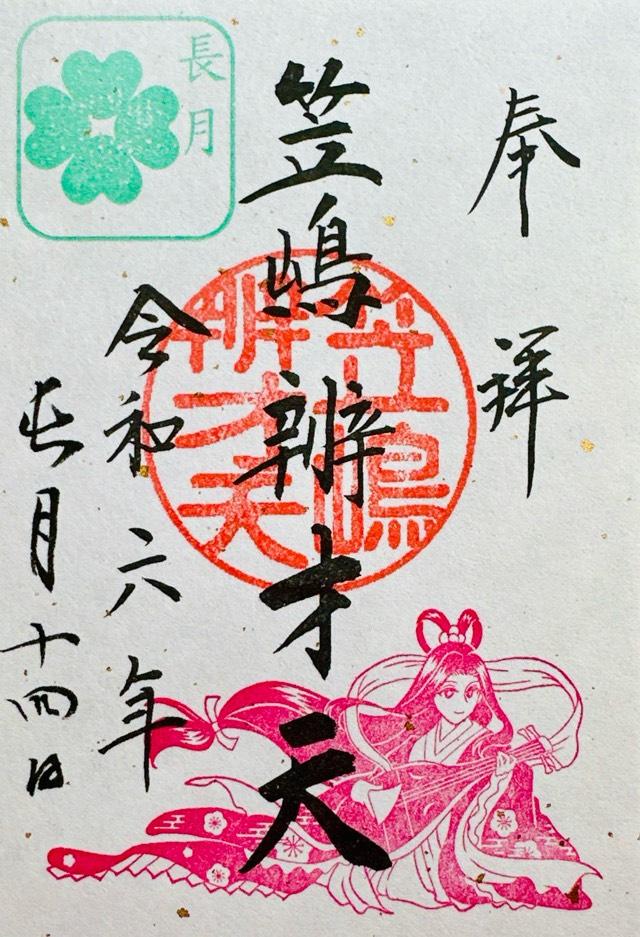 奉拝
笠嶋辨才天
笠嶋
辨才天
令和六年
長月十四日
長月